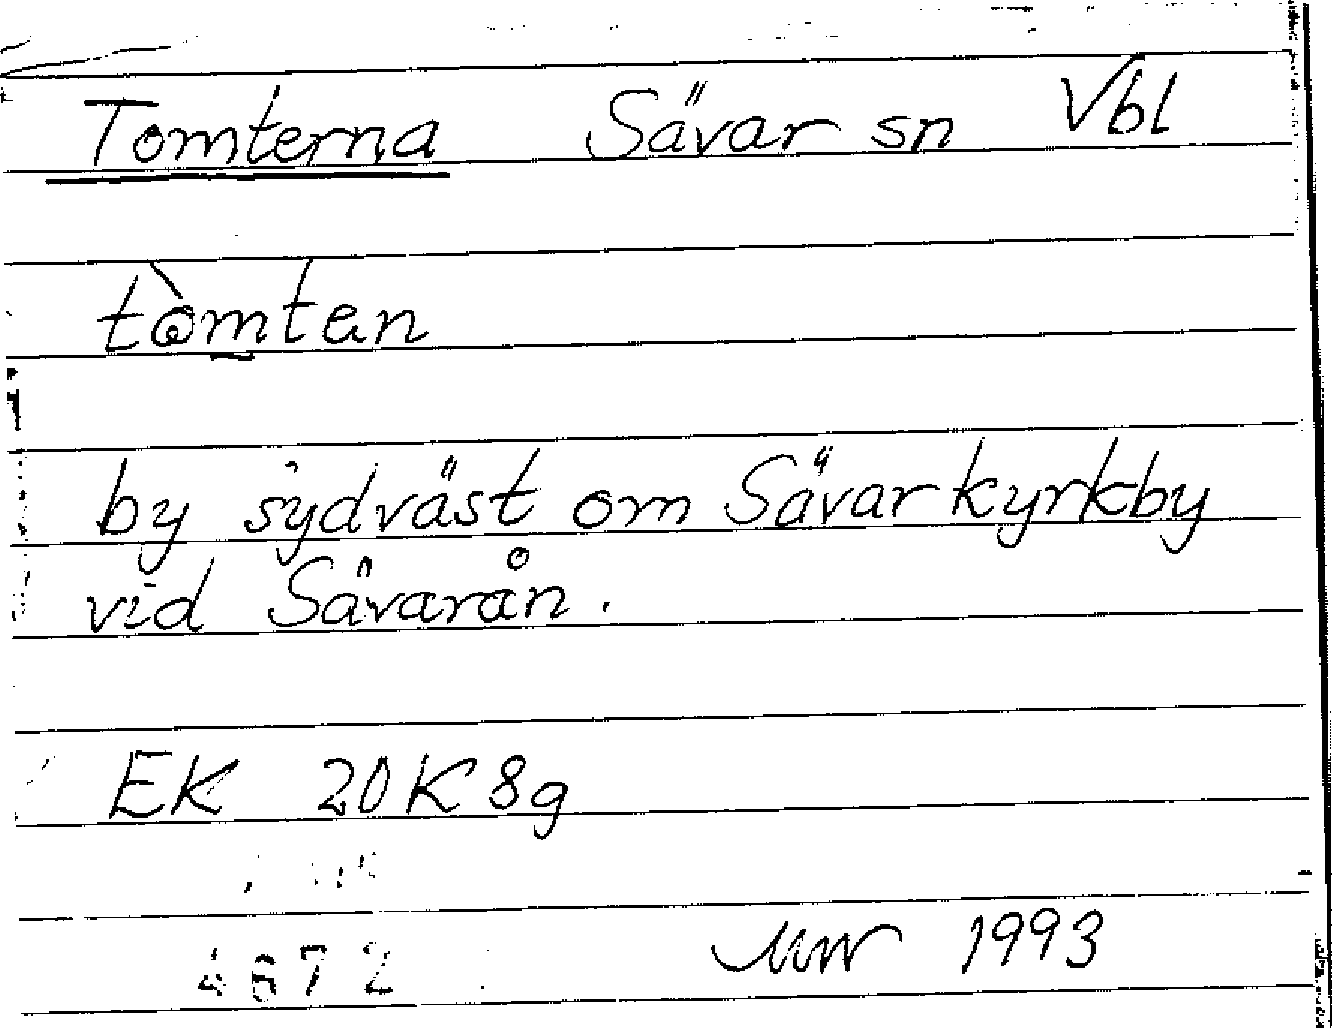 Tomterna Sävar sn Vbl
tòmten
by sydväst om Sävar kyrkby
vid Sävarån.
EK 20K8g
4672 1993